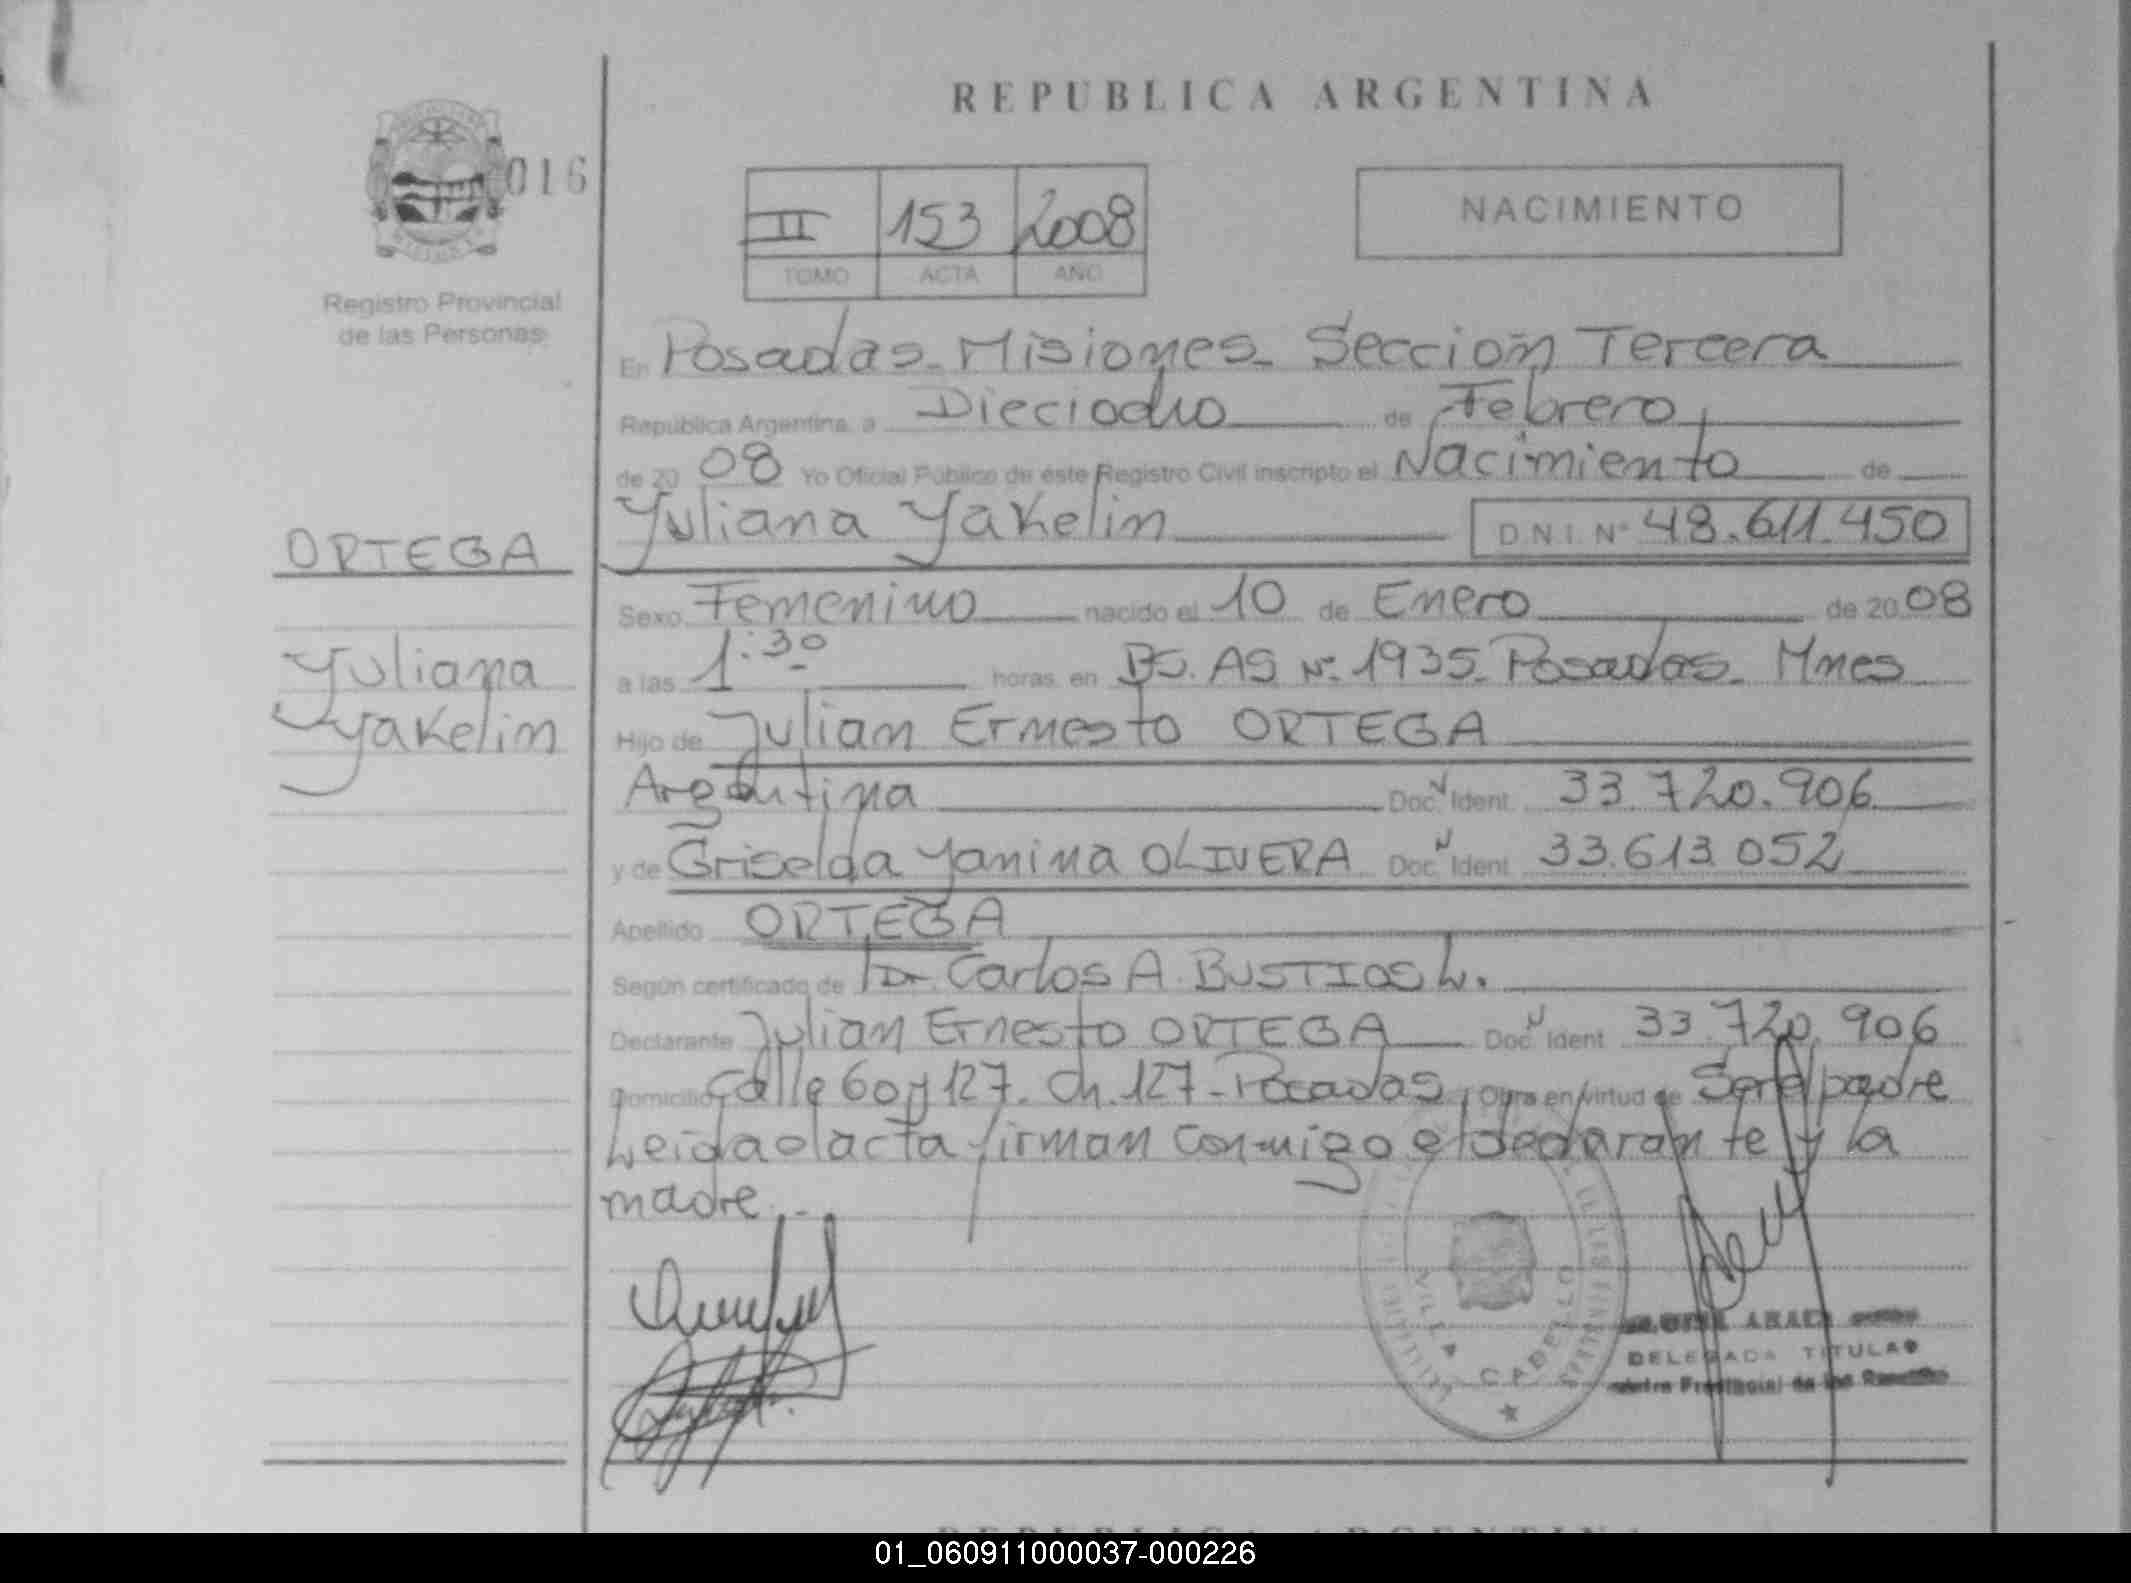 REPUBLICA ARGENTINA
016
II 153 2008
TOMO ACTA AÑO
NACIMIENTO
Registro Provincial
de las Personas
En Posadas - Misiones - Sección Tercera
República Argentina, a Dieciocho de Febrero
de 2008 Yo Oficial Público de éste Registro Civil inscripto el Nacimiento de
Yuliana Yakelin D.N.I. Nº 48.611.450
ORTEGA
Sexo Femenino nacido el 10 de Enero de 2008
Yuliana
a las 1:30 horas en BS. AS Nº 1935 - Posadas - Mnes
Yakelin
Hijo de Julian Ernesto ORTEGA
Argentina Doc. Ident. 33.720.906
y de Griselda Yanina OLIVERA Doc. Ident. 33.613.052
Apellido ORTEGA
Según certificado de Dr. Carlos A. BUSTIOS L.
Declarante Julian Ernesto ORTEGA Doc. Ident. 33.720.906
Domicilio Calle 60 y 127. Ch. 127 - Posadas Obra en virtud de Ser el padre
Leida el acta firman conmigo el declarante y la
madre.-
VILLA CABELLO
DELEGADA TITULAR
01_060911000037-000226